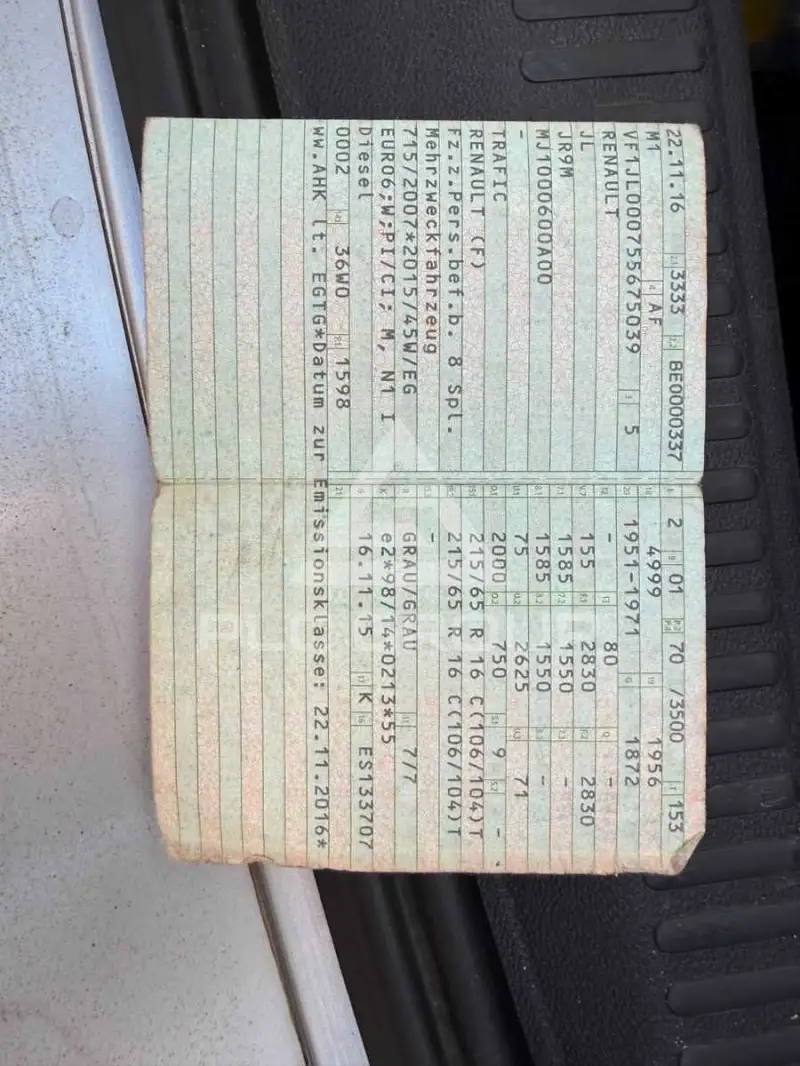 22.11.16 3333 BE0000337
M1 AF
VF1JL000755675039 5
RENAULT
JL
JR9M
MJ1000600A00
-
TRAFIC
RENAULT (F)
Fz.z.Pers.bef.b. 8 Spl.
Mehrzweckfahrzeug
715/2007*2015/45W/EG
EURO6;W;PI/CI; M, N1 I
Diesel
0002 36W0 1598
2 01 70 /3500 153
4999 1956
1951-1971 1872
- 80 -
155 2830 2830
1585 1550 -
1585 1550 -
75 2625 71
2000 750 9 -
215/65 R 16 C(106/104)T
215/65 R 16 C(106/104)T
-
GRAU/GRAU 7/7
e2*98/14*0213*55
16.11.15 K ES133707
WW.AHK lt. EGTG*Datum zur Emissionsklasse: 22.11.2016*